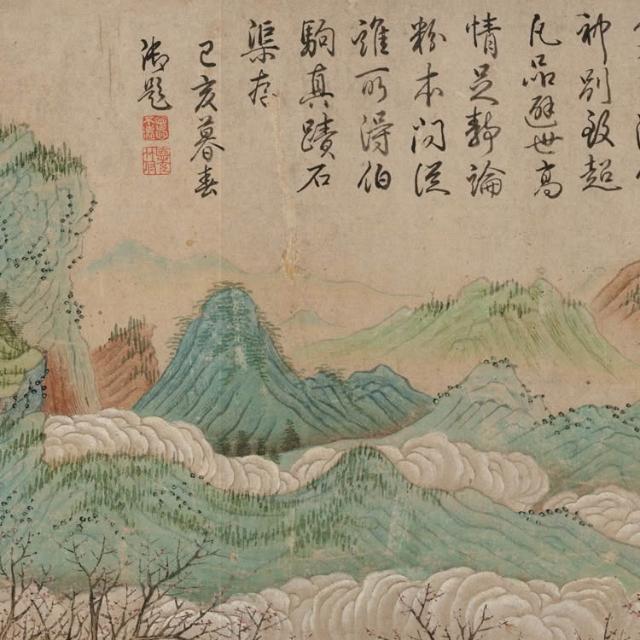 神別致超
凡品避世高
情足靜論
粉本問從
誰所得伯
駒真蹟石
渠存
己亥暮春
御題